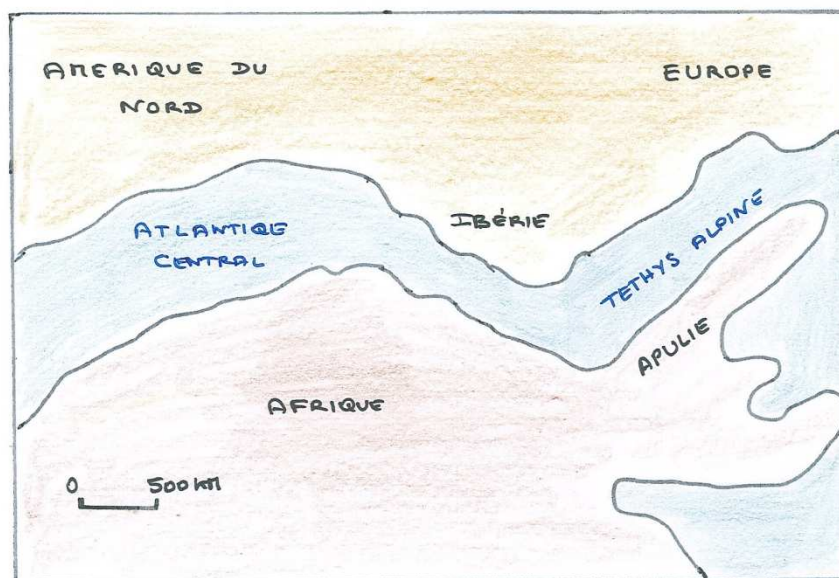 AMERIQUE DU
NORD
EUROPE
IBÉRIE
ATLANTIQE
CENTRAL
TETHYS ALPINE
APULIE
AFRIQUE
0 500 km